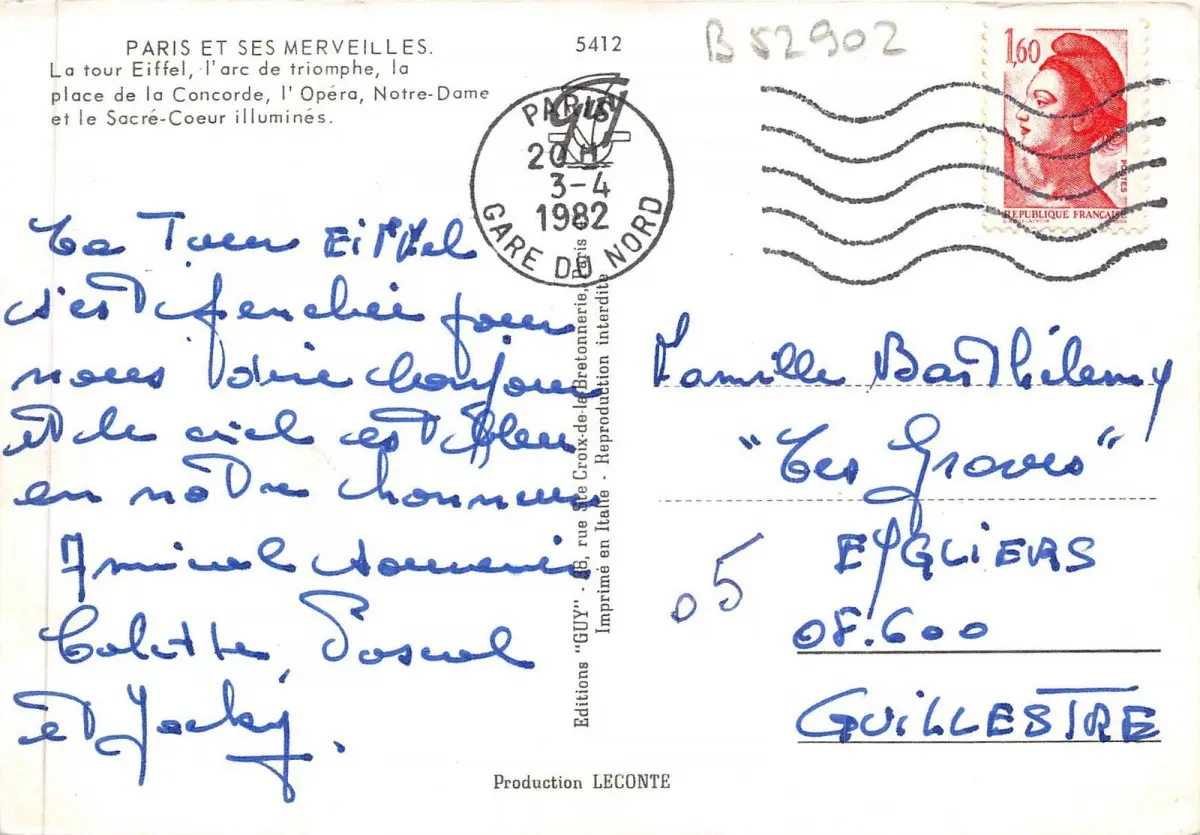 PARIS ET SES MERVEILLES.
La tour Eiffel, l'arc de triomphe, la
place de la Concorde, l'Opéra, Notre-Dame
et le Sacré-Coeur illuminés.
5412
B 52902
PARIS
20 H
3-4
1982
GARE DU NORD
1,60
POSTES
REPUBLIQUE FRANÇAISE
La Tour Eiffel
s'est penchée pour
nous dire bonjour
et le ciel est bleu
en nôtre honneur
Amical souvenir
Colette, Pascal
et Jacky.
Editions "GUY" - 36, rue Ste Croix-de-la-Bretonnerie, Paris
Imprimé en Italie - Reproduction interdite
Famille Barthélemy
"Les Graves"
EYGLIERS
05
08.600
GUILLESTRE
Production LECONTE